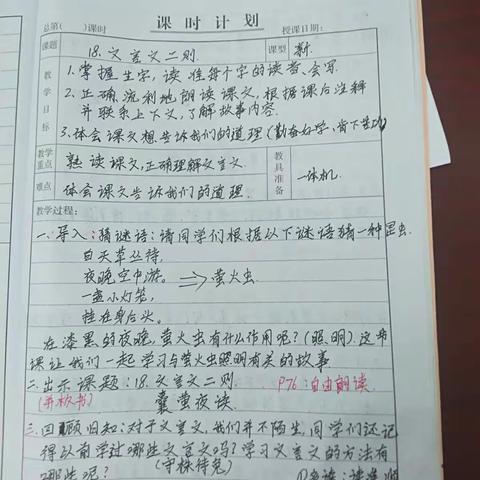 课时计划
总第( )课时 授课日期:
课题 18.文言文二则. 课型 新.
教学目标 1.掌握生字,读准每个字的读音、会写.
2.正确、流利地朗读课文,根据课后注释
并联系上下文,了解故事内容.
3.体会课文想告诉我们的道理(勤奋好学、肯下苦功)
教学重点 熟读课文,正确理解文言文. 教具准备 一体机.
难点 体会课文告诉我们的道理.
教学过程:
一、导入:猜谜语:请同学们根据以下谜语猜一种昆虫.
白天草丛待,
夜晚空中游。 ⇒萤火虫.
一盏小灯笼,
挂在身后头。
在漆黑的夜晚,萤火虫有什么作用呢?(照明).这节
课让我们一起学习与萤火虫照明有关的故事.
二、出示课题:18.文言文二则. P76:自由朗读.
(并板书) 囊萤夜读.
三、回顾旧知:对于文言文,我们并不陌生,同学们还记
得以前学过哪些文言文吗?学习文言文的方法有
哪些呢? (守株待兔)